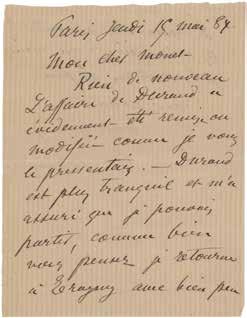 Paris Jeudi 15 mai 84
Mon cher Monet
Rien de nouveau
L'affaire de Durand a
évidement été remise ou
modifiée comme je vous
le pressentais. — Durand
est plus tranquil et m'a
assuré que je pouvais
partir, comme bien
vous pensez je retourne
à Eragny avec bien peu